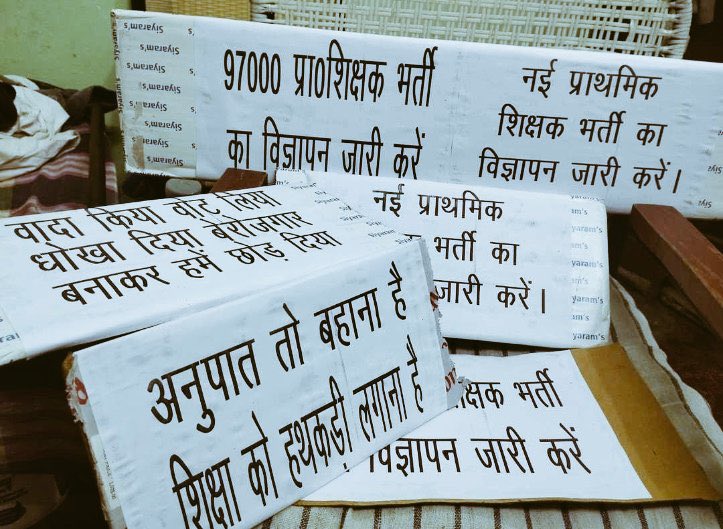 97000 प्रा0शिक्षक भर्ती
का विज्ञापन जारी करें
नई प्राथमिक
शिक्षक भर्ती का
विज्ञापन जारी करें।
वादा किया वोट लिया
धोखा दिया बेरोजगार
बनाकर हमें छोड़ दिया
नई प्राथमिक
भर्ती का
जारी करें।
अनुपात तो बहाना है
शिक्षा को हथकड़ी लगाना है
भर्ती
विज्ञापन जारी करें
Siyaram's
Siyaram's
Siyaram's
Siyaram's
Siyaram's
Siyaram's